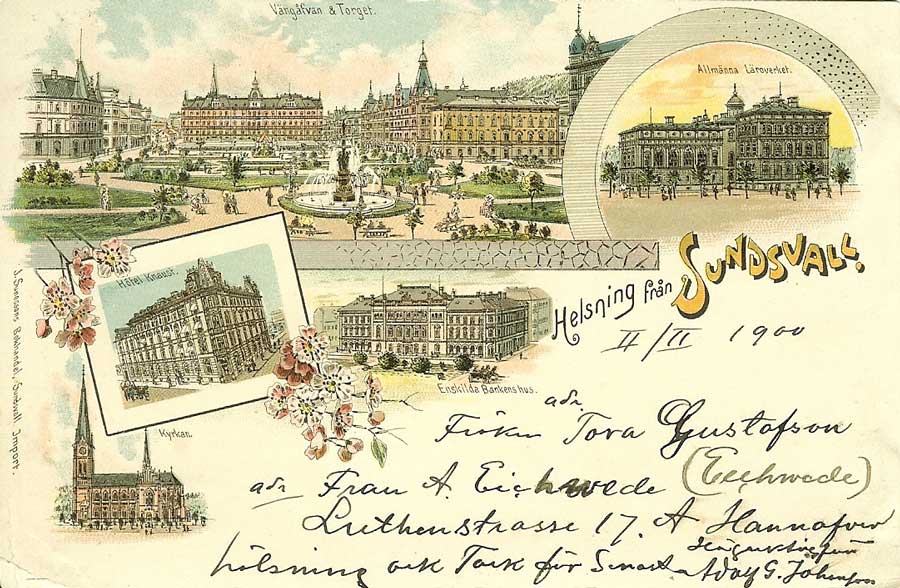 Vängåfvan & Torget.
Allmänna Läroverket.
Hôtel Knaust.
Helsning från
SUNDSVALL.
II/II 1900
Enskilda Bankens hus.
Kyrkan.
J. Svenssons Bokhandel, Sundsvall Import
adr.
Fröken Tora Gustafson
adr Frau A. Eichwede (Eichwede)
Luthenstrasse 17. A Hannofver
hälsning ock Tack för
Adolf G. Johansson